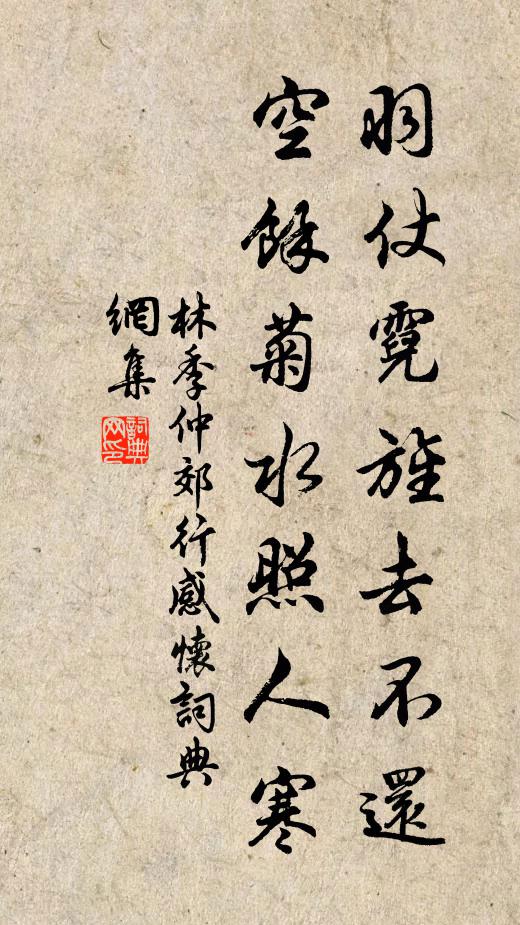 羽仗霓旌去不還
空餘菊水照人寒
林季仲郊行感懷詞典
網集
詞典
网印